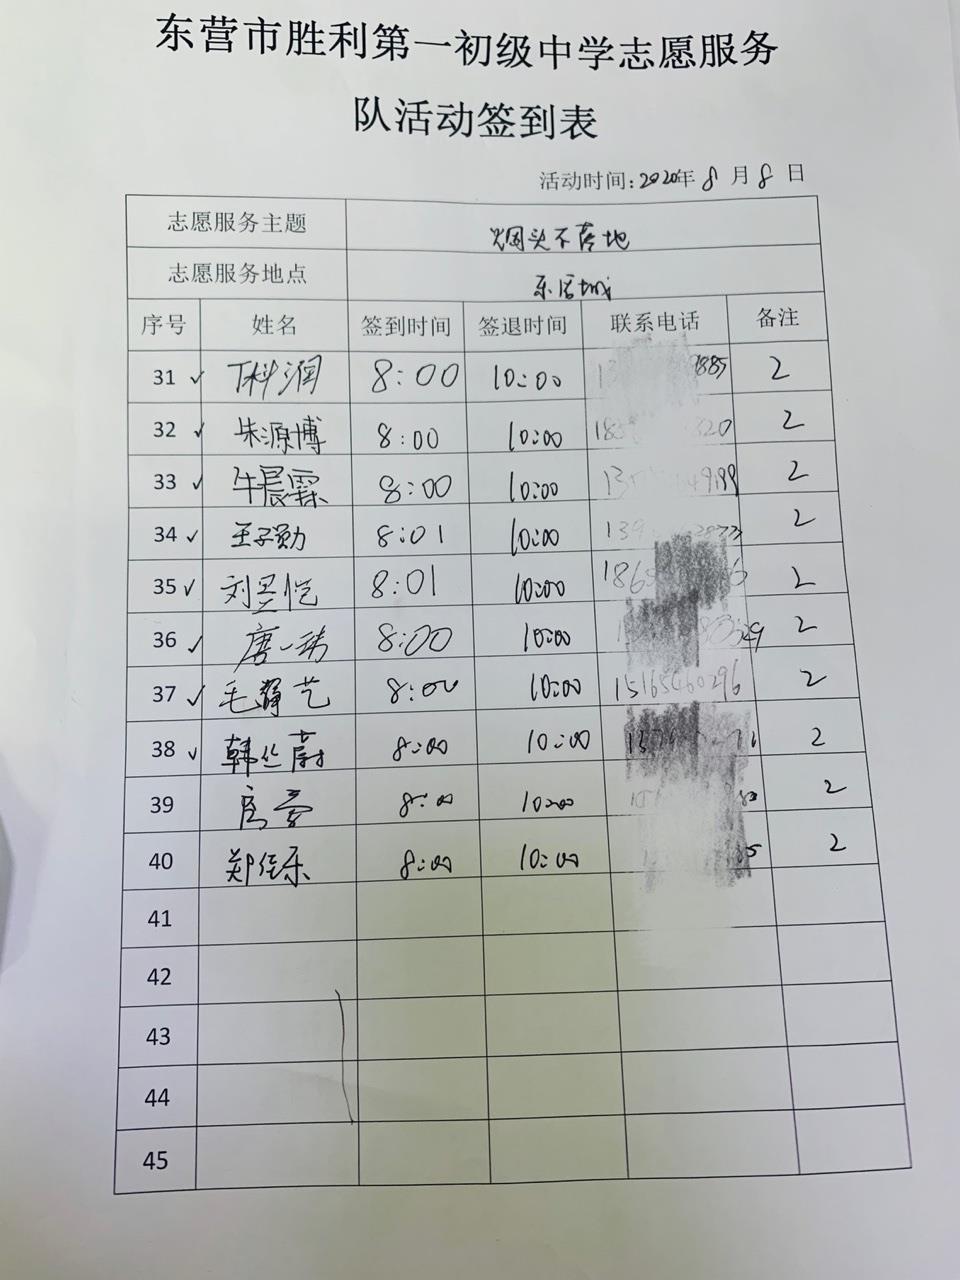 东营市胜利第一初级中学志愿服务
队活动签到表
活动时间:2020年 8 月 8 日
志愿服务主题 烟头不落地
志愿服务地点 东居城
序号 姓名 签到时间 签退时间 联系电话 备注
31 ✓ 丁科润 8:00 10:00 2
32 ✓ 朱源博 8:00 10:00 2
33 ✓ 牛晨霖 8:00 10:00 2
34 ✓ 王子勋 8:01 10:00 2
35 ✓ 刘昱恺 8:01 10:00 2
36 ✓ 唐一 8:00 10:00 2
37 ✓ 毛静艺 8:00 10:00 15165460296 2
38 ✓ 韩竺蔚 8:00 10:00 2
39 8:00 10:00 2
40 郑佳乐 8:00 10:00 2
41
42
43
44
45